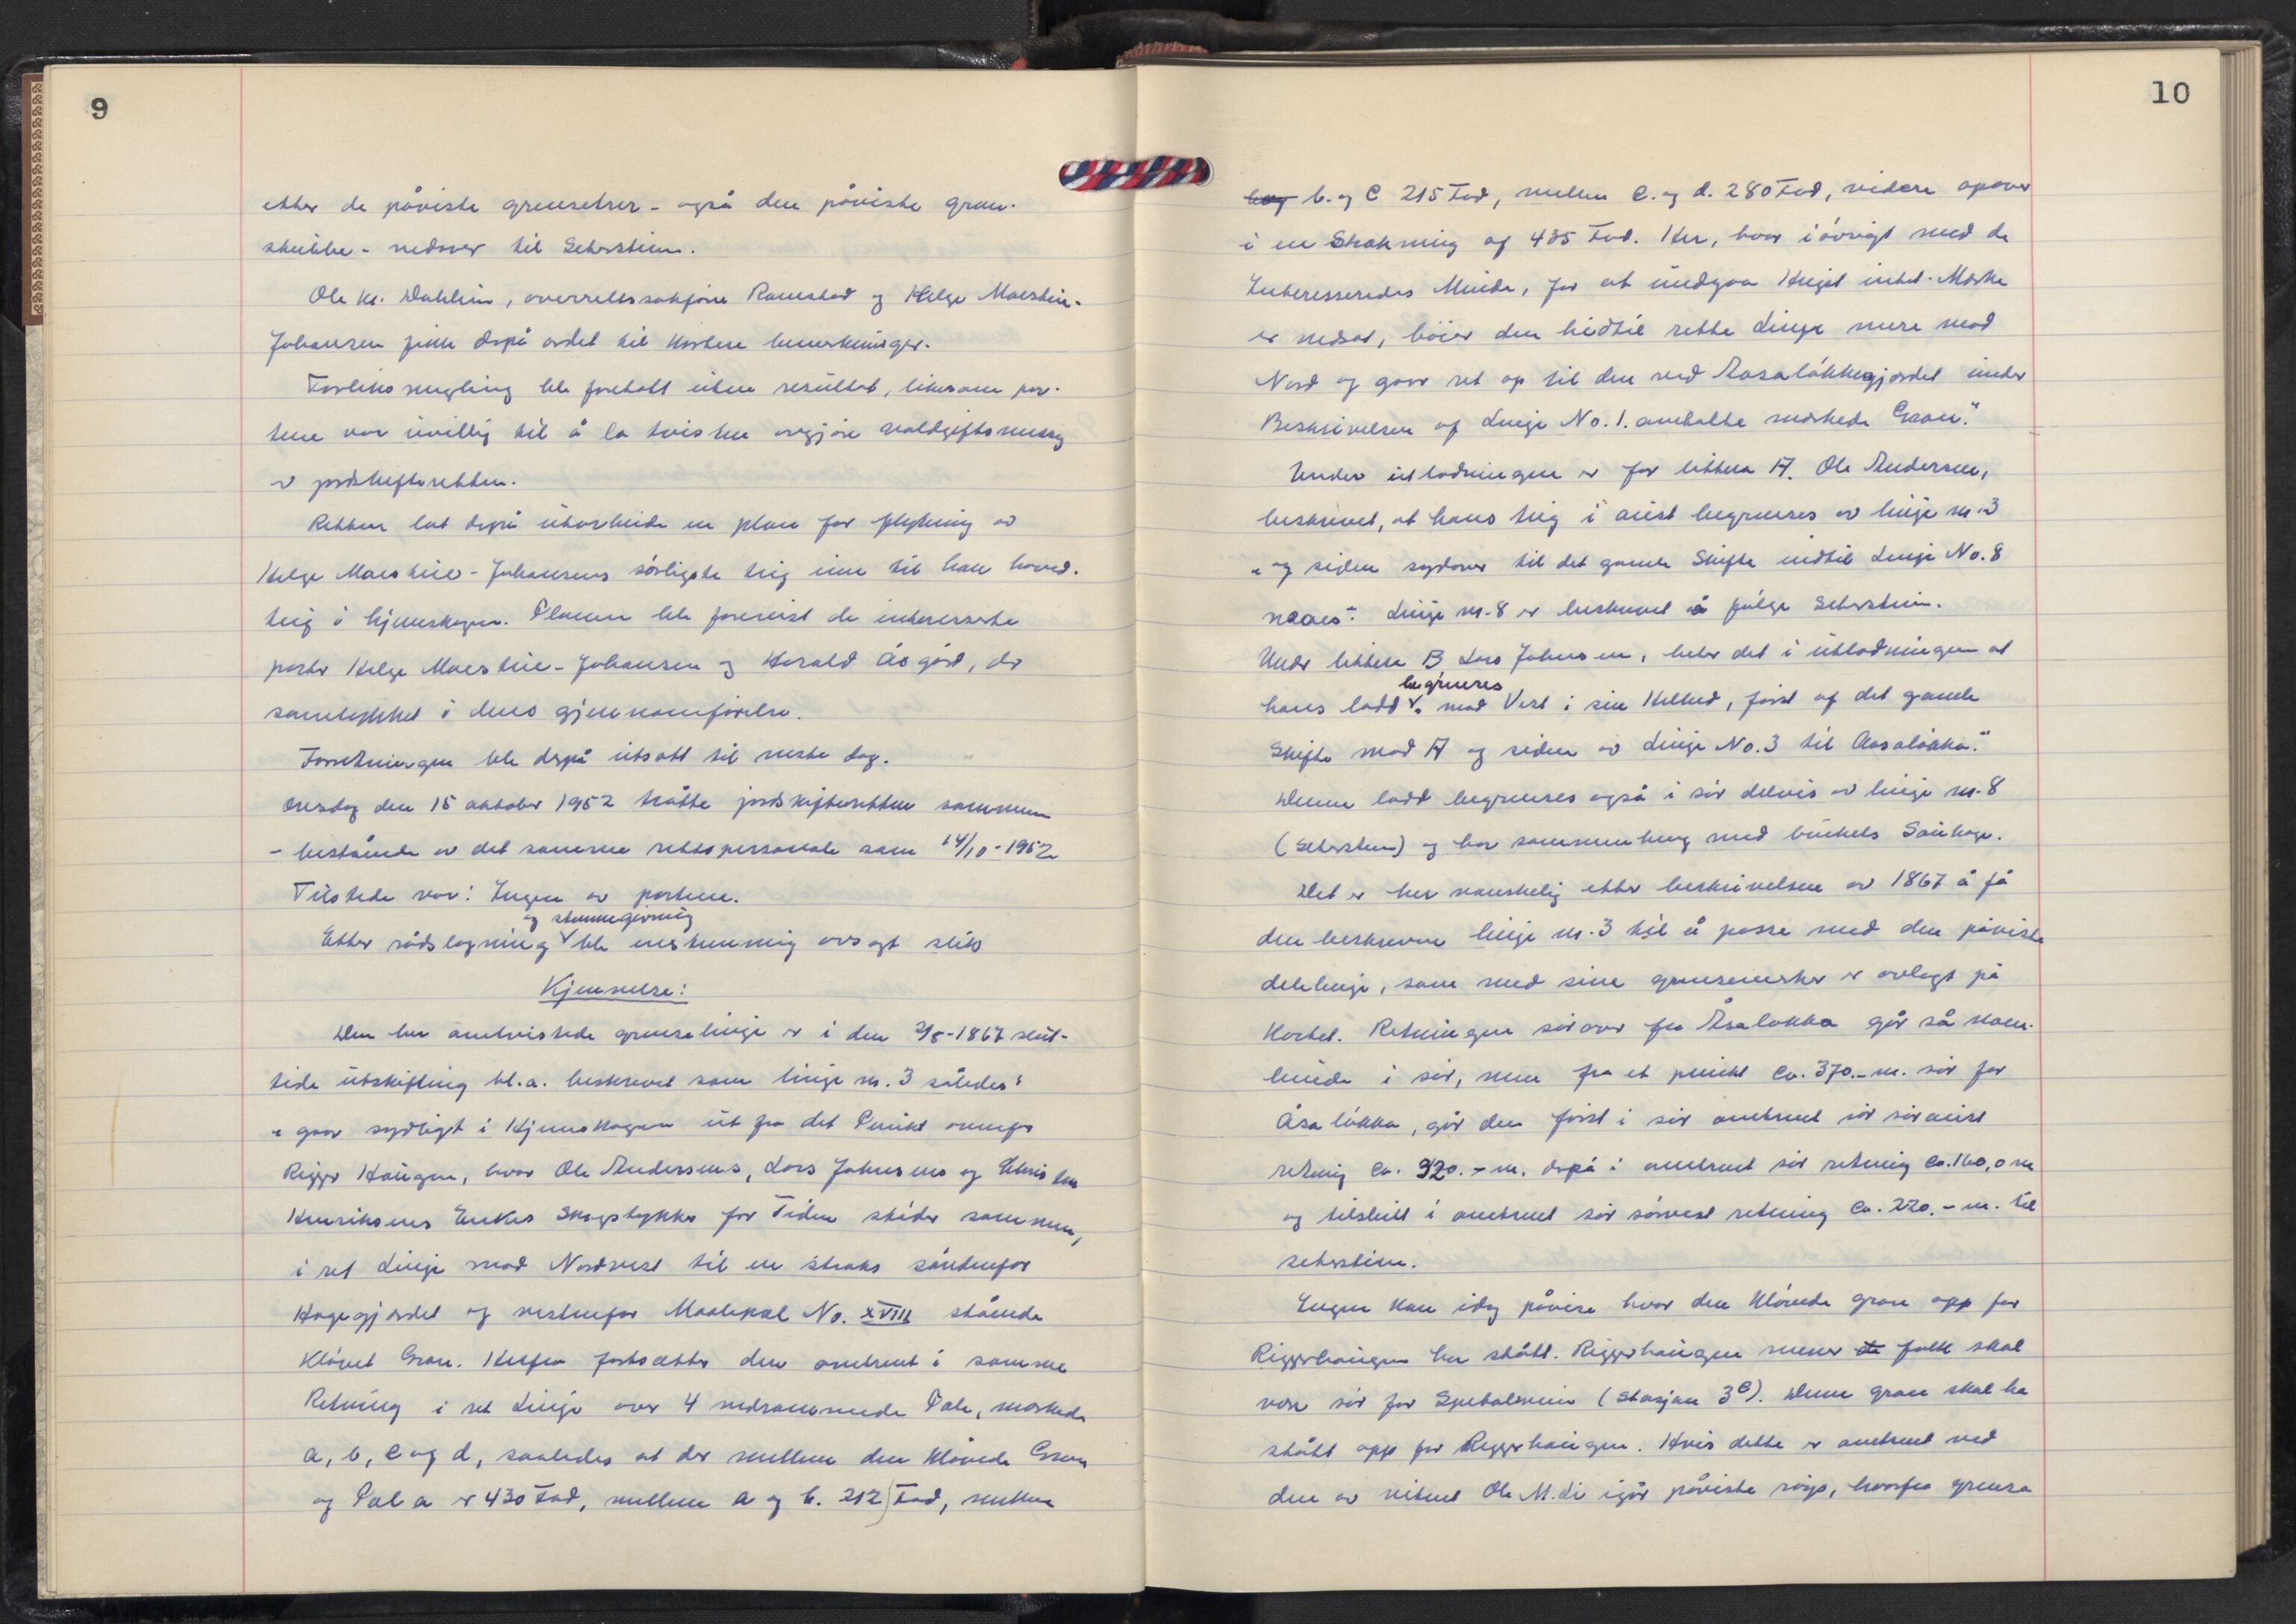 9
etter de påviste grensetrær - også den påviste gran-
stubbe - nedover til Seterstien.
Ole Kr. Dahlin, overrettssakfører Ramstad og Helge Maestue-
Johansen fikk derpå ordet til kortere bemerkninger.
Forliksmegling ble foretatt uten resultat, likesom par-
tene var uvillig til å la tvisten avgjøre voldgiftsmessig
av jordskifteretten.
Retten lot derpå utarbeide en plan for flytning av
Helge Maestue-Johansens sørligste teig inn til han hoved-
teig i hjemskogen. Planen ble forevist de interesserte
parter Helge Maestue-Johansen og Harald Åsgård, der
samtykket i dens gjennomførelse.
Forretningen ble derpå utsatt til neste dag.
Onsdag den 15 oktober 1952 trådte jordskifteretten sammen
- bestående av det samme rettspersonale som 14/10-1952
Tilstede var: Ingen av partene.
og stemmegivning
Etter rådslagning v ble enstemmig avsagt slik
Kjennelse:
Den her omtvistede grenselinje er i den 2/8-1867 slut-
tede utskifting bl.a. beskrevet som linje nr. 3 således:
"gaar sydligst i Hjemskogen ut fra det Punkt ovenfor
Rigger Haugen, hvor Ole Andersens, Lars Johnsens og Christen
Henriksens Enkes Skogstykker for Tiden støder sammen,
i ret Linje mod Nordvest til en straks søndenfor
Hagegjordet og vestenfor Maalepæl No. XVIII stående
Kløvet Gran. Herfra fortsætter den omtrent i samme
Retning i ret Linje over 4 nedrammede Pæle, mærkede
a, b, c og d, saaledes at der mellem den kløvede Gran
og Pæl a er 430 Fod, mellem a og b. 212 Fod, mellem
10
b. og c 215 Fod, mellem c. og d. 280 Fod, videre opover
i en Strækning af 435 Fod. Her, hvor iøvrigt med de
Interesseredes Minde, for at undgaa Hugst intet Mærke
er nedsat, bøier den hidtil rette Linje mere mod
Nord og gaar ret op til den ved Aasaløkkegjordet under
Beskrivelsen af Linje No. 1. omtalte mærkede Gran."
Under utlodningen er for littera A. Ole Andersen,
beskrevet, at hans teig i aust begrenses av linje nr. 3
"og siden sydover til det gamle Skifte indtil Linje No. 8
naaes". Linje nr. 8 er beskrevet å følge Seterstien.
Under littera B Lars Johnsen, heter det i utlodningen at
begrenses
hans lodd v "mod Vest i sin Helhed, først af det gamle
Skifte mod A og siden av Linje No. 3 til Aasaløkka."
Denne lodd begrenses også i sør delvis av linje nr. 8
(Seterstien) og har sammenheng med brukets Sauhage.
Det er her vanskelig etter beskrivelsen av 1867 å få
den beskrevne linje nr. 3 til å passe med den påviste
delelinje, som med sine grensemerker er avlagt på
Kartet. Retningen sørover fra Åsaløkka går så noen-
lunde i sør, men fra et punkt ca. 370.- m. sør for
Åsaløkka, går den først i sør omtrent sør søraust
retning ca. 320.- m. derpå i omtrent sør retning ca. 160,0 m
og tilslutt i omtrent sør sørvest retning ca. 220.- m. til
seterstien.
Ingen kan idag påvise hvor den kløvede gran opp for
Riggerhaugen har stått. Riggerhaugen mener folk skal
være sør for Spetalsveien (Stasjon 3e). Denne gran skal ha
stått opp for Riggerhaugen. Hvis dette er omtrent ved
den av vitnet Ole M. Li igår påviste røys, hvorfra grensa